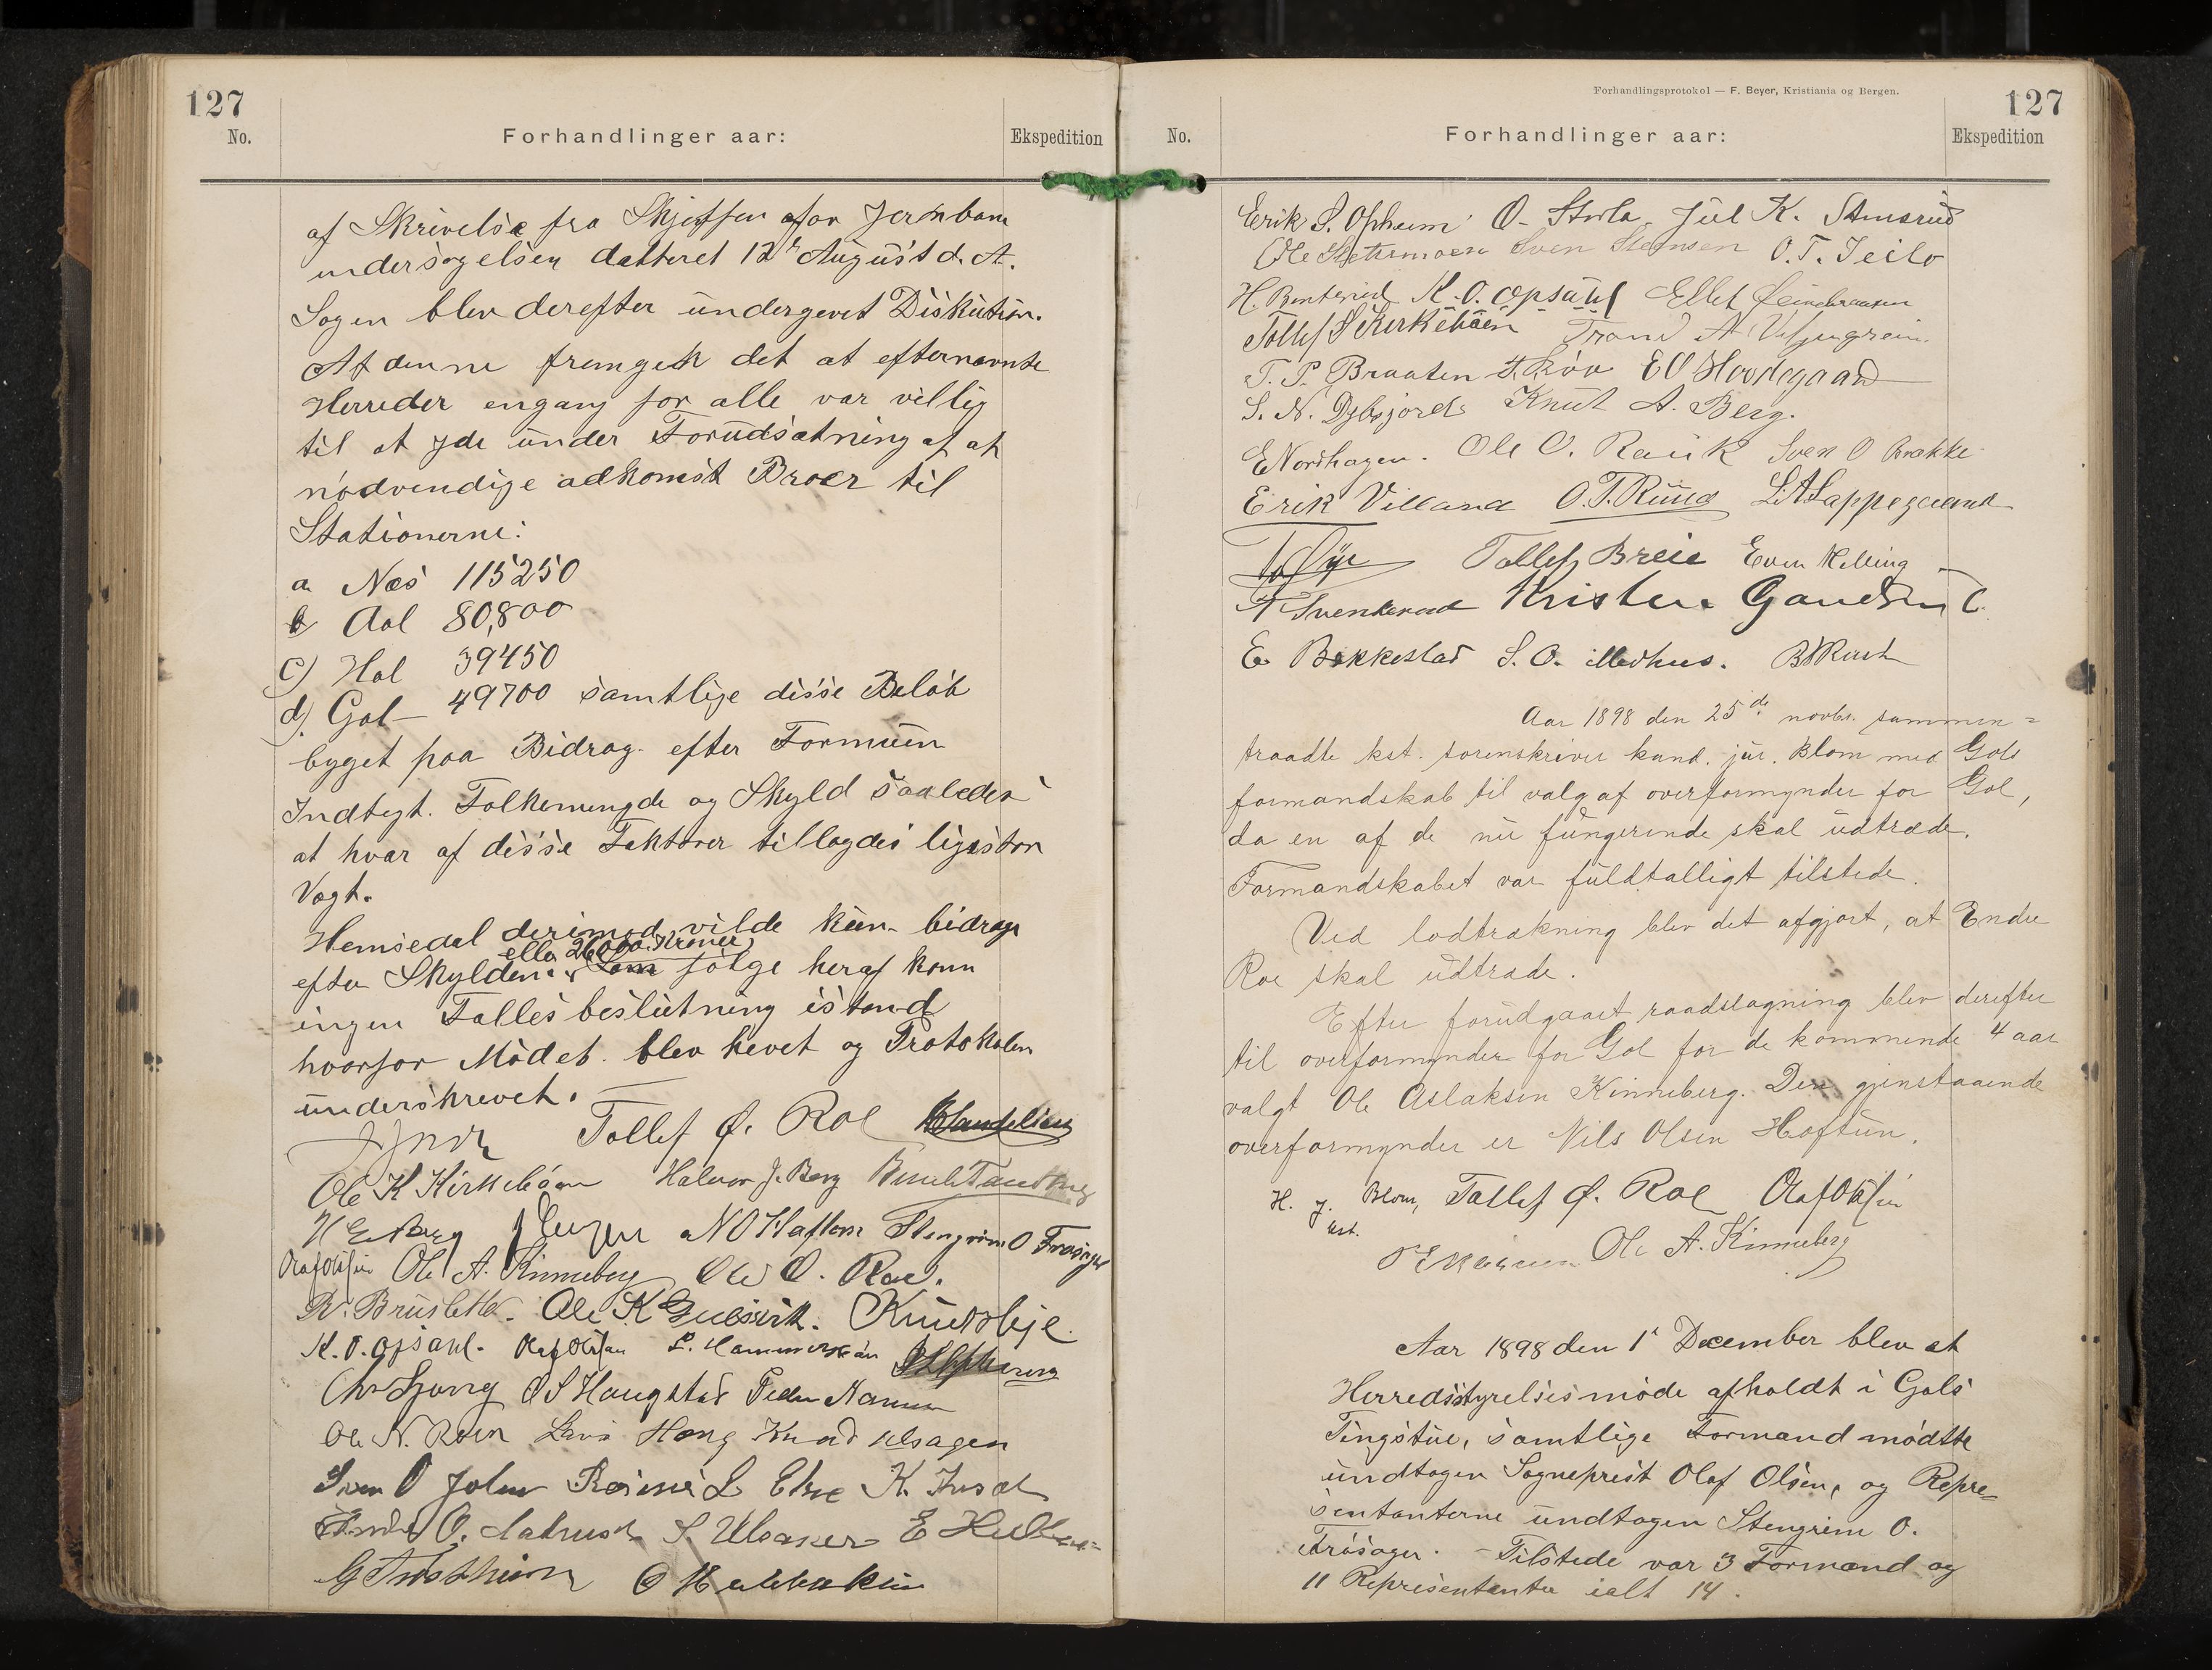 127
No.
Forhandlinger aar:
Ekspedition
af Skrivelse fra Skjeffen for Jernbane
undersøgelsen datteret 12te August d. A.
Sagen blev derefter undergevet Diskution.
Af denne fremgik det at efternævnte
Herreder engang for alle var villig
til at yde under Forudsætning af at
nødvendige adkomst Broer til
Stationerne:
a Næs 115250
b Aal 80,800
c) Hol 39450
d) Gol 49700 samtlige disse Beløb
bygget paa Bidrag efter Formuen
Indtegt. Folkemengde og Skyld saaledes
at hvar af disse Faktorer tillagdes ligestor
Vegt.
Hemsedal derimod vilde kun bidrage
eller 26000 Kroner
efter Skylden. Som følge heraf kom
ingen Felles beslutning istand
hvorfor Mødet blev hevet og Protokolen
underskrevet.
Tollef Ø. Roe
Ole K Kirkebøen Halvor J. Berg
H E Berg N O Haftun Stengrim O Trøsager
Olaf Olsen Ole A. Kinneberg Ole O. Roe.
R. Bruslette. Ole K Gulsvik. Knut Sleje
K. O. Opsant. Olaf Olsen
O S Haugstad
Ole N. Roen Lars Haug Knud
Sven O E K.
O. S. Ulsaker E
O
Forhandlingsprotokol — F. Beyer, Kristiania og Bergen.
127
No.
Forhandlinger aar:
Ekspedition
Erik S. Opheim O. Storla Jul K. Stensrud
Ole Sven Stensen O. T. Teilo
H. K. O. Opsaul
Tollef S Kirkebøen Trond A
T. P. Braaten T. Røv E O Hovdegaard
S. N. Knut A. Berg.
E Nordhagen. Ole O. Rauk Sven O Brække
Erik Villand O. T. Ruud L A Lappegaard
Tollef Breie Even
Svenkerud Kristen
E. Bekkestad S. O. Medhus.
Aar 1898 den 25de novbr. sammen=
traadte kst. sorenskriver kand. jur. Blom med Gols
formandskab til valg af overformynder for Gol,
da en af de nu fungerende skal udtræde.
Formandskabet var fuldtalligt tilstede.
Ved lodtrækning blev det afgjort, at Endre
Roe skal udtræde.
Efter forudgaaet raadslagning blev derefter
til overformynder for Gol for de kommende 4 aar
valgt Ole Aslaksen Kinneberg. Den gjenstaaende
overformynder er Nils Olsen Haftun.
H. J. Blom, Tollef Ø. Roe Olaf Olsen
kst.
Ole A. Kinneberg
Aar 1898 den 1ste December blev et
Herredsstyrelsesmøde afholdt i Gols
Tingstue, samtlige Formænd mødtte
undtagen Sogneprest Olaf Olsen, og Repre=
sentanterne undtagen Stengrim O.
Trøsager. - Tilstede var 3 Formænd og
11 Representanter ialt 14.